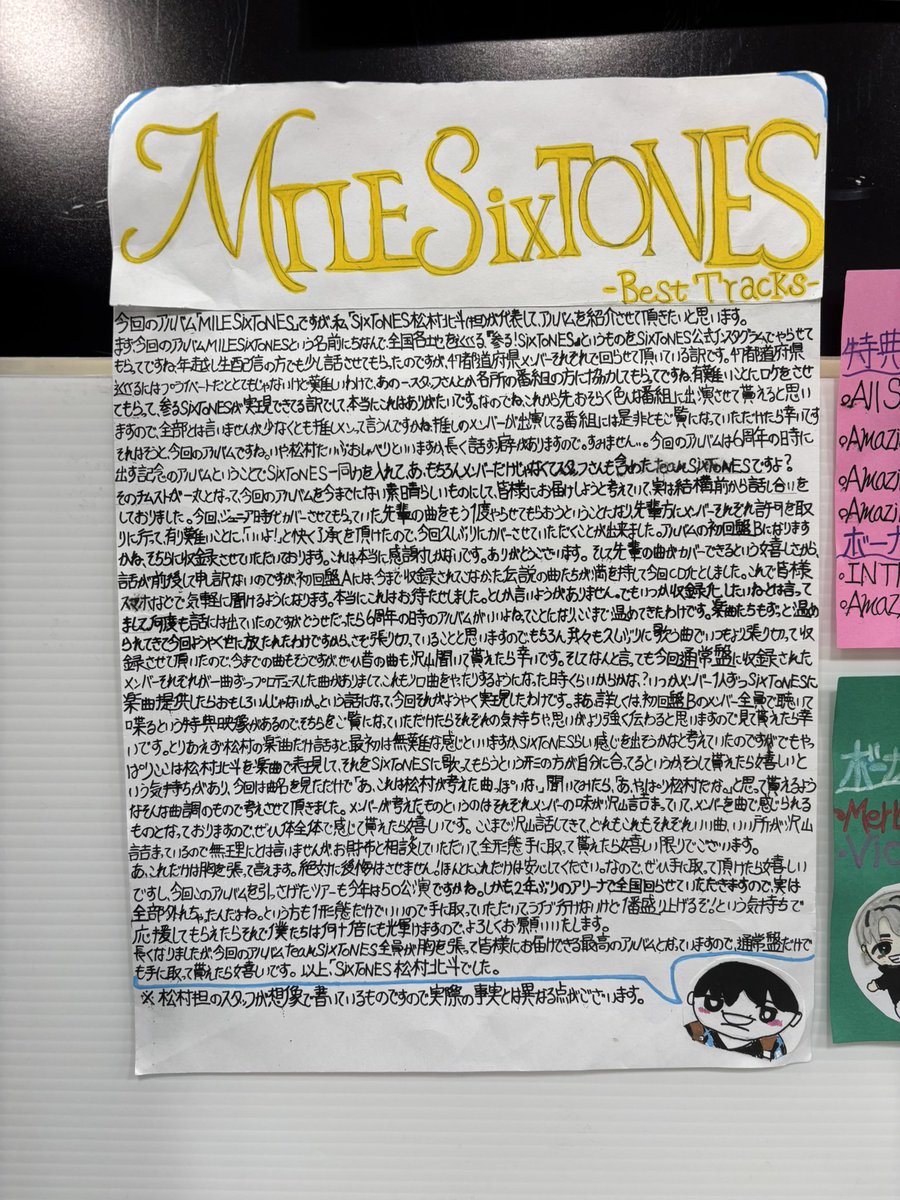 MILESixTONES
-Best Tracks-
今回のアルバム「MILESixTONES」ですが、私「SixTONES松村北斗(担)」が代表して、アルバムを紹介させて頂きたいと思います。
まず今回のアルバムMILESixTONESという名前にちなんで、全国各地をめぐる。『参る!SixTONES』というものをSixTONES公式インスタグラムでやらせて
もらってですね、年越し生配信の方でも少し話させてもらったのですが、47都道府県メンバーそれぞれで回らせて頂いている訳です。47都道府県
めぐるにはハイペースだととてもじゃないけど難しいわけで、あのースタッフさんとか各所の番組の方に協力してもらってですね。有難いことにロケをさせ
てもらって、参るSixTONESが実現できてる訳でして、本当にこれはありがたいです。なのでね、これから先、おそらく色んな番組に出演させて貰えると思い
ますので、全部とは言いませんが、少なくとも推しメンって言うんですかね、推しのメンバーが出演してる番組には是非ともご覧になっていただけたら幸いです
それはそうと、今回のアルバムですね。いや松村だいぶおしゃべりといいますか、長く話す癖がありますので。すみません…。今回のアルバムは6周年の日時に
出す記念のアルバムということでSixTONES一同力を入れて、あ、もちろんメンバーだけじゃなくてスタッフさんも含めたteamSixTONESですよ?
そのチームストが一丸となって今回のアルバムを今までにない素晴らしいものにして、皆様にお届けしようと考えていて、実は結構前から話し合いを
しておりました。今回、ジュニア時代カバーさせてもらっていた先輩の曲をもう1度やらせてもらおうということになり、先輩方にメンバーそれぞれ許可を取
りに行って、有り難いことに、「いいよ!」と快く了承を頂けたので、今回久しぶりにカバーさせていただくことが出来ました。アルバムの初回盤Bになります
かね、そちらに収録させていただいております。これは本当に感謝しかないです。ありがとうございます。そして先輩の曲がカバーできるという嬉しさから、
話が前後して申し訳ないのですが、初回盤Aには、今まで収録されてこなかった伝説の曲たちが満を持して今回CD化としました。これで皆様
スマホなどで気軽に聞けるようになります。本当にこれはお待たせしました。とか言いようがありません。でもいつか収録化したいねとは言って
まして何度も話には出ていたのですがどうせだったら6周年の時のアルバムがいいよねってことになり、ここまで温めてきたわけです。楽曲たちもずっと温め
られてきて今回ようやく世に放たれたわけですから、さぞ張り切っていることと思いますので、もちろん我々も久しぶりに歌う曲でいつもより張り切って収
録させて頂いたので、今までの曲もそうですが、ぜひ昔の曲も沢山聞いて貰えたら幸いです。そしてなんと言っても今回通常盤に収録された
メンバーそれぞれが一曲ずつプロデュースした曲がありまして、これもソロ曲をやったりするようになった時くらいからかな?いつかメンバー1人ずつSixTONESに
楽曲提供したらおもしろいんじゃないか。という話になって今回それがようやく実現したわけです。まあ、詳しくは、初回盤Bのメンバー全員で聴いて
喋るという特典映像があるので、そちらをご覧になっていただけたらそれぞれの気持ちや思いがより強く伝わると思いますので見て貰えたら幸
いです。とりあえず松村の楽曲だけ話すと最初は無難な感じといいますかSixTONESらしい感じを出そうかなと考えていたのですがでもやっ
ぱりここは松村北斗を楽曲で表現して、それをSixTONESに歌ってもらうという形の方が自分に合ってるというか、そうして貰えたら嬉しいと
いう気持ちがあり、今回は曲名を見ただけで「あ、これは松村が考えた曲っぽいな」、聞いてみたら、「あ、やはり松村だな。」と思って貰えるよう
なそんな曲調のもので考えさせて頂きました。メンバーが考えたものというのはそれぞれメンバーの味が沢山詰まっていて、メンバーを曲で感じられる
ものとなっておりますので、ぜひ体全体で感じて貰えたら嬉しいです。ここまで沢山話してきて、どれもこれもそれぞれいい曲、いい所が沢山
詰まっているので無理にとは言いませんが、お財布と相談していただいて全形態手に取って貰えたら嬉しい限りでございます。
あ、これだけは胸を張って言えます。絶対に後悔はさせません!ほんとにこれだけは安心してください。なので、ぜひ手に取って頂けたら嬉しい
ですし、今回このアルバムを引っさげたツアーも今年は50公演ですかね。しかも2年ぶりのアリーナで全国回らせていただきますので、実は
全部外れちゃったんだよね。という方も1形態だけでいいので手に取っていただいて、ライブ行けないけど1番盛り上げるぞ!という気持ちで
応援してもらえたらそれで僕たちは何十倍にも光輝けますので、よろしくお願いいたします。
長くなりましたが、今回のアルバムteamSixTONES全員が胸を張って皆様にお届けできる最高のアルバムとなっていますので、通常盤だけで
も手に取って貰えたら嬉しいです。以上、「SixTONES松村北斗でした。
※松村担のスタッフが想像で書いているものですので実際の事実とは異なる点がございます。
特典
All S
Amazi
Amazi
Amazi
ボーナ
INT
Amaz
ボーナ
Merr
Vic